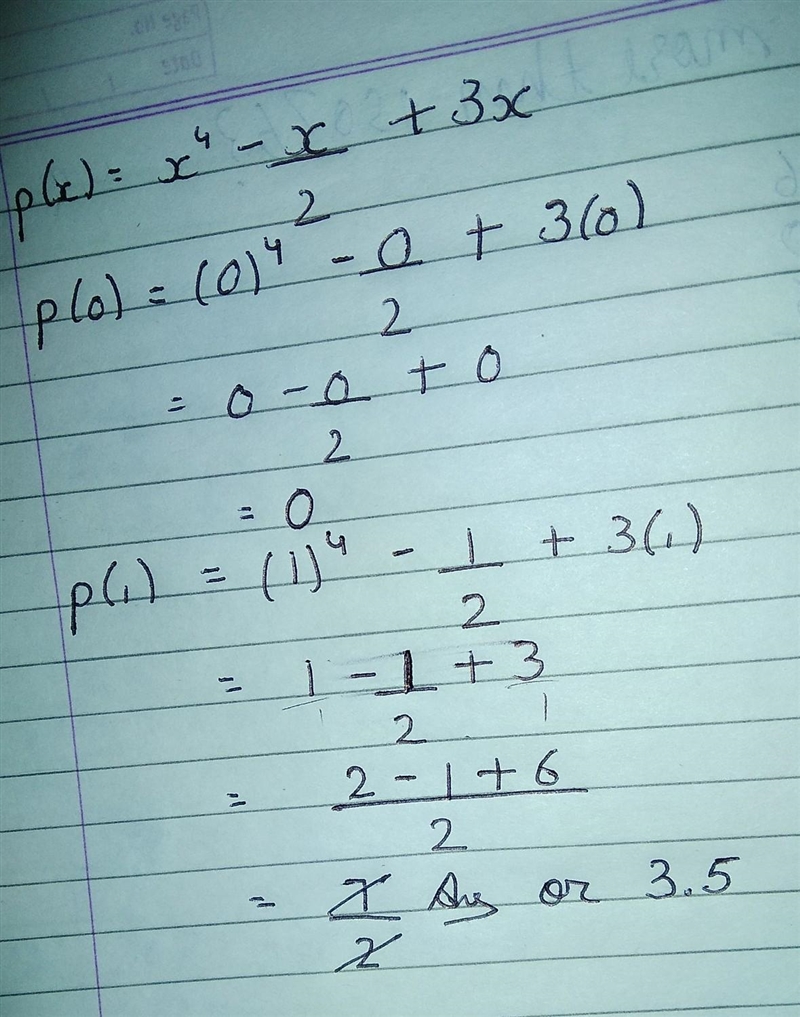 Page No.
Date
p(x) = x⁴ - x/2 + 3x
p(0) = (0)⁴ - 0/2 + 3(0)
= 0 - 0/2 + 0
= 0
p(1) = (1)⁴ - 1/2 + 3(1)
= 1/1 - 1/2 + 3/1
= (2 - 1 + 6)/2
= 7/2 Ans or 3.5